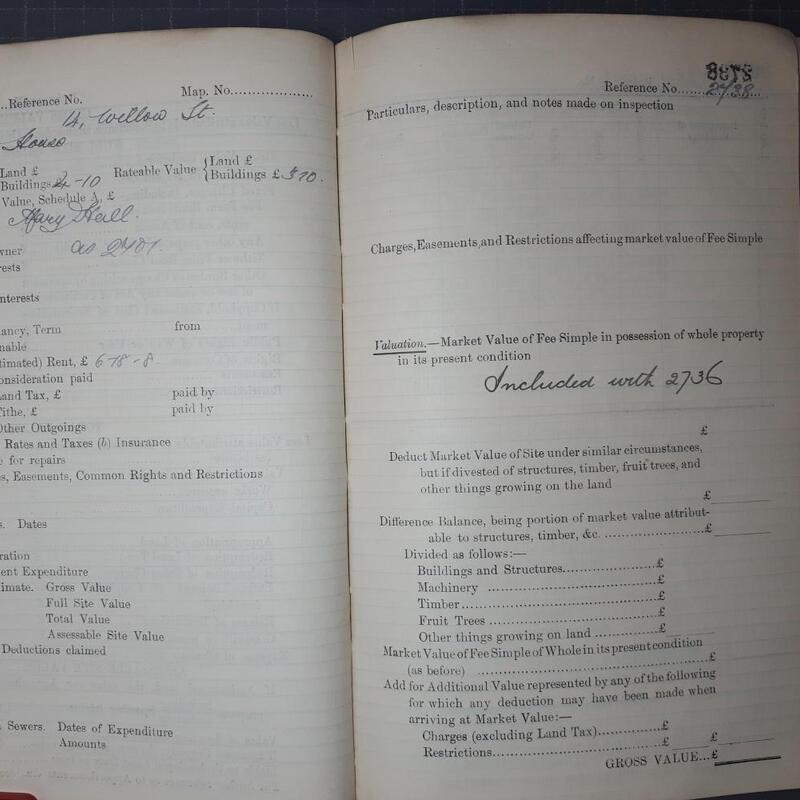 ...Reference No. Map. No...................
14, Willow St.
House
Land £ Rateable Value { Land £
Buildings 4-10 Buildings £
Value, Schedule A, £
Mary Hall.
wner as 2701.
rests
nterests
ancy, Term from
nable
timated) Rent, £ 678-8.
onsideration paid
Land Tax, £ paid by
Tithe, £ paid by
Other Outgoings
Rates and Taxes (b) Insurance
e for repairs
s, Easements, Common Rights and Restrictions
s. Dates
ration
ent Expenditure
imate. Gross Value
Full Site Value
Total Value
Assessable Site Value
Deductions claimed
Sewers. Dates of Expenditure
Amounts
Reference No....2738...
Particulars, description, and notes made on inspection
Charges, Easements, and Restrictions affecting market value of Fee Simple
Valuation.—Market Value of Fee Simple in possession of whole property
in its present condition
Included with 2736
£
Deduct Market Value of Site under similar circumstances,
but if divested of structures, timber, fruit trees, and
other things growing on the land
£
Difference Balance, being portion of market value attribut-
able to structures, timber, &c. ........................£
Divided as follows:—
Buildings and Structures......................£
Machinery ........................................£
Timber..............................................£
Fruit Trees ........................................£
Other things growing on land ..............£
Market Value of Fee Simple of Whole in its present condition
(as before) ...................................................£
Add for Additional Value represented by any of the following
for which any deduction may have been made when
arriving at Market Value:—
Charges (excluding Land Tax)..............£
Restrictions.........................................£ £
GROSS VALUE...£